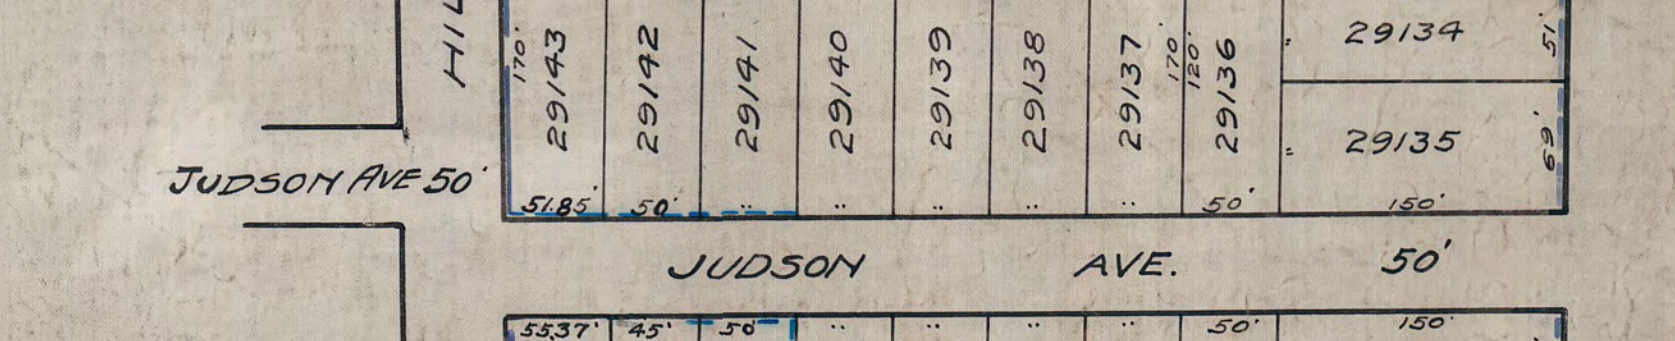 HIL
170'
29143
29142
29141
29140
29139
29138
29137
170'
120'
29136
" 29134 51'
" 29135 69'
JUDSON AVE 50'
51.85' 50' " " " " " 50' 150'
JUDSON AVE. 50'
55.37' 45' 50' " " " " 50' 150'